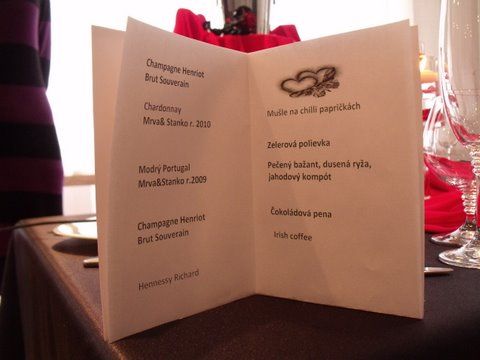 Champagne Henriot
Brut Souverain
Chardonnay
Mrva& Stanko r. 2010
Modrý Portugal
Mrva&Stanko r.2009
Champagne Henriot
Brut Souverain
Hennessy Richard
Mušle na chilli papričkách
Zelerová polievka
Pečený bažant, dusená ryža,
jahodový kompót
Čokoládová pena
Irish coffee